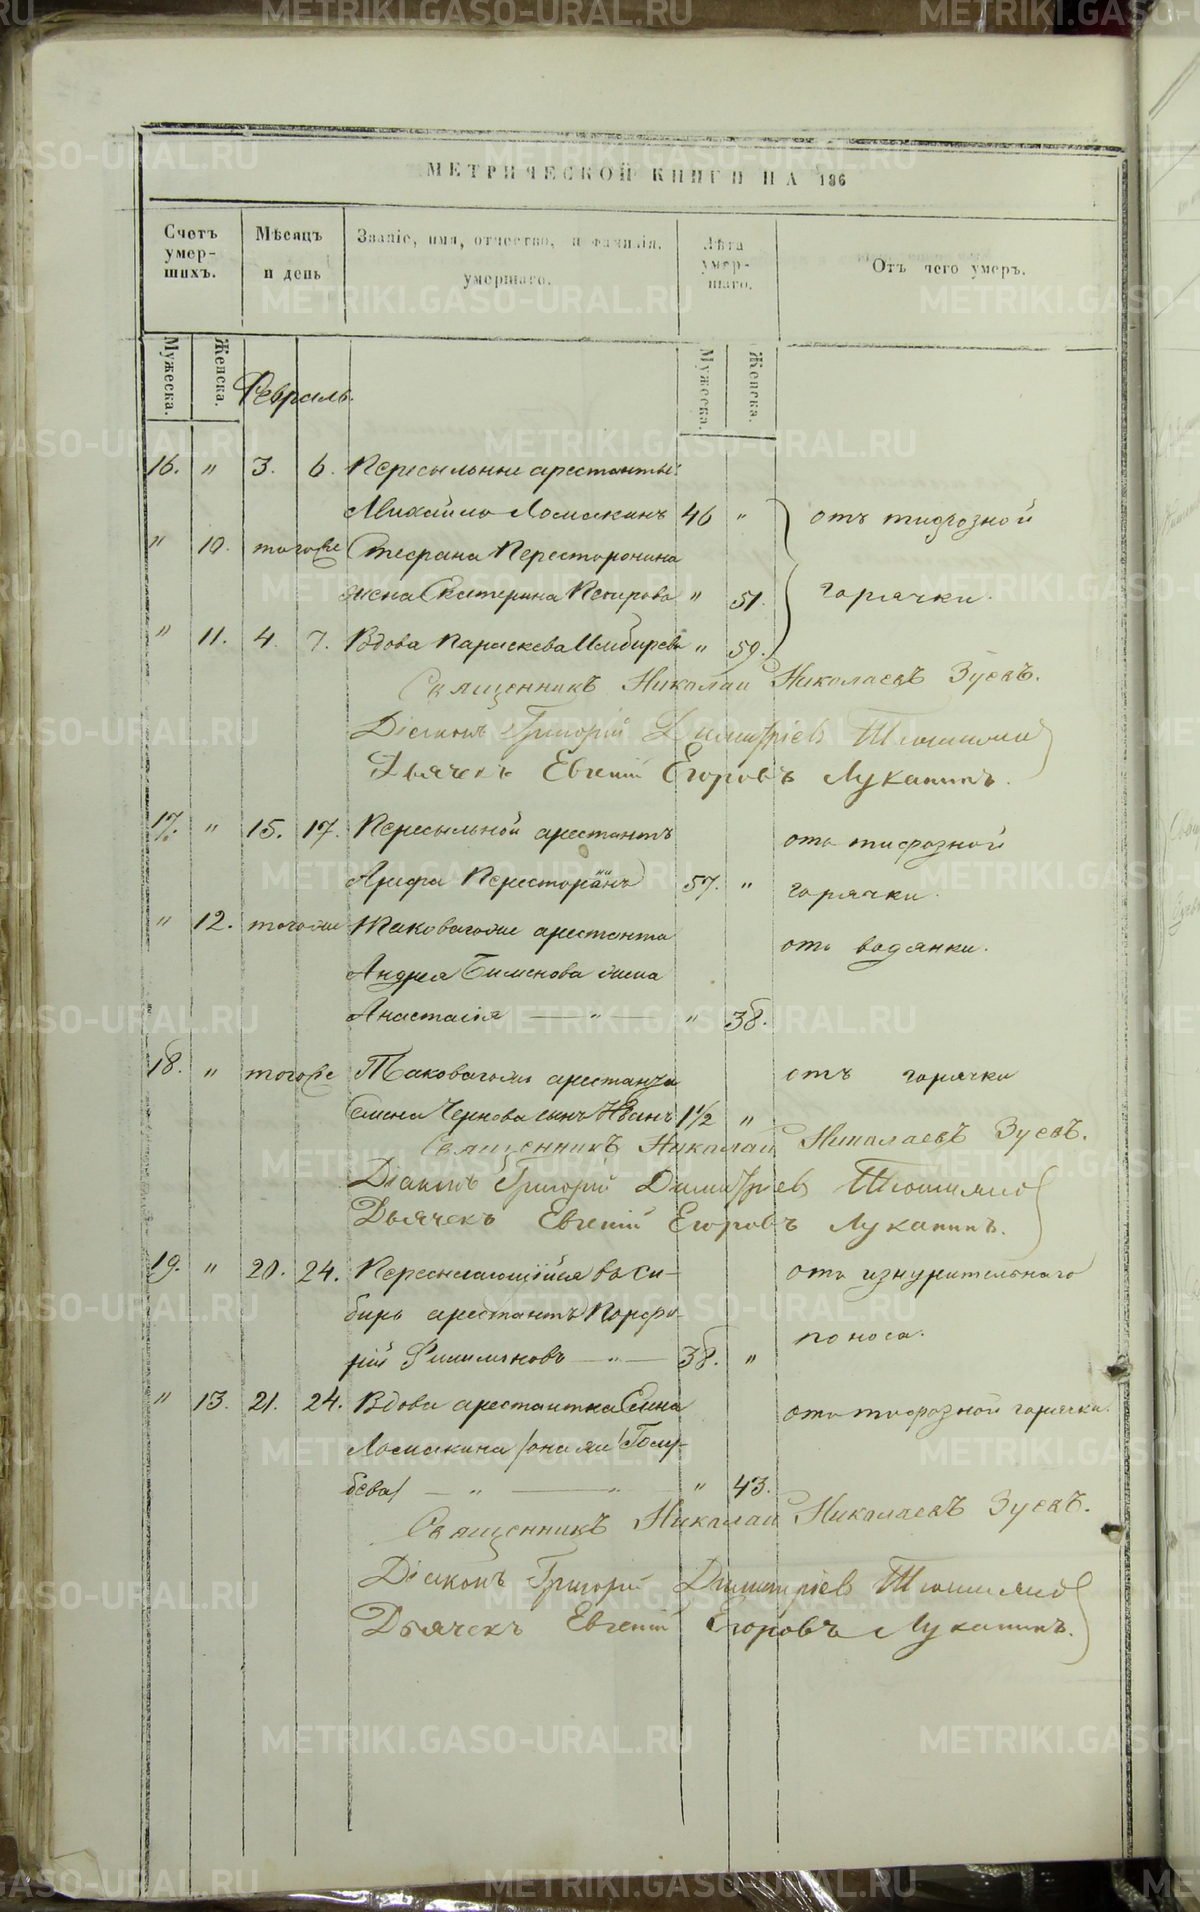 МЕТРИЧЕСКОЙ КНИГИ НА 186
Счетъ умер-шихъ.
Мѣсяцъ и день
Званіе, имя, отчество, и фамилія. умершаго.
Лѣта умер-шаго.
Отъ чего умеръ.
Мужеска.
Женска.
Мужеска.
Женска.
Февраль.
16. " 3. 6. Пересыльные арестанты:
Михайло Ломакинъ 46 " отъ тифозной
" 10. тогоже Стефана Пересторонина
жена Екатерина Петрова " 51. горячки.
" 11. 4. 7. Вдова Параскева " 59.
Священникъ Николай Николаевъ Зуевъ.
Діаконъ Григорій Димитріев
Дьячекъ Евгеній Егоровъ Луканинъ.
17. " 15. 17. Пересыльной арестантъ отъ тифозной
Арефа 57. " горячки.
" 12. тогоже Таковагоже арестанта отъ водянки.
Андрея жена
Анастасія — " — " 38.
18. " тогоже Таковагоже арестанта отъ горячки
Семена Чернова сынъ Иванъ 1 1/2 "
Священникъ Николай Николаевъ Зуевъ.
Діаконъ Григорій Димитріев
Дьячекъ Евгеній Егоровъ Луканинъ.
19. " 20. 24. Пересылающійся въ Си- отъ изнурительнаго
бирь арестантъ Порфи-
рій Филимоновъ — " — 38. " поноса.
" 13. 21. 24. Вдова арестантка Елена отъ тифозной горячки.
Ломакина /она же Голу-
бева/ — " — " — " 43.
Священникъ Николай Николаевъ Зуевъ.
Діаконъ Григорій Димитріев
Дьячекъ Евгеній Егоровъ Луканинъ.
METRIKI.GASO-URAL.RU